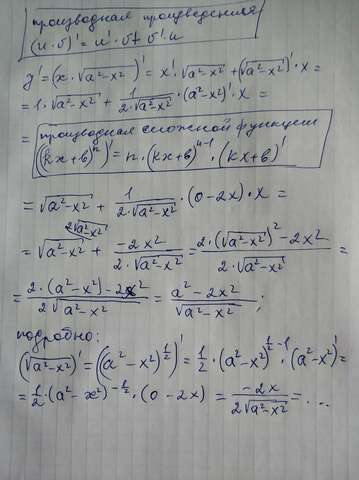 производная произведения
(u·v)' = u'·v + v'·u
y' = (x·√(a²-x²))' = x'·√(a²-x²) + (√(a²-x²))'·x =
= 1·√(a²-x²) + 1/(2·√(a²-x²))·(a²-x²)'·x =
= производная сложной функции
((kx+b)ⁿ)' = n·(kx+b)ⁿ⁻¹·(kx+b)'
= √(a²-x²) + 1/(2·√(a²-x²))·(0-2x)·x =
2√(a²-x²)
= √(a²-x²) + (-2x²)/(2·√(a²-x²)) = (2·(√(a²-x²))²-2x²)/(2·√(a²-x²)) =
= (2·(a²-x²)-2x²)/(2√(a²-x²)) = (a²-2x²)/√(a²-x²);
подробно:
(√(a²-x²))' = ((a²-x²)^(1/2))' = 1/2·(a²-x²)^(1/2-1)·(a²-x²)' =
= 1/2·(a²-x²)^(-1/2)·(0-2x) = (-2x)/(2√(a²-x²)) = ...